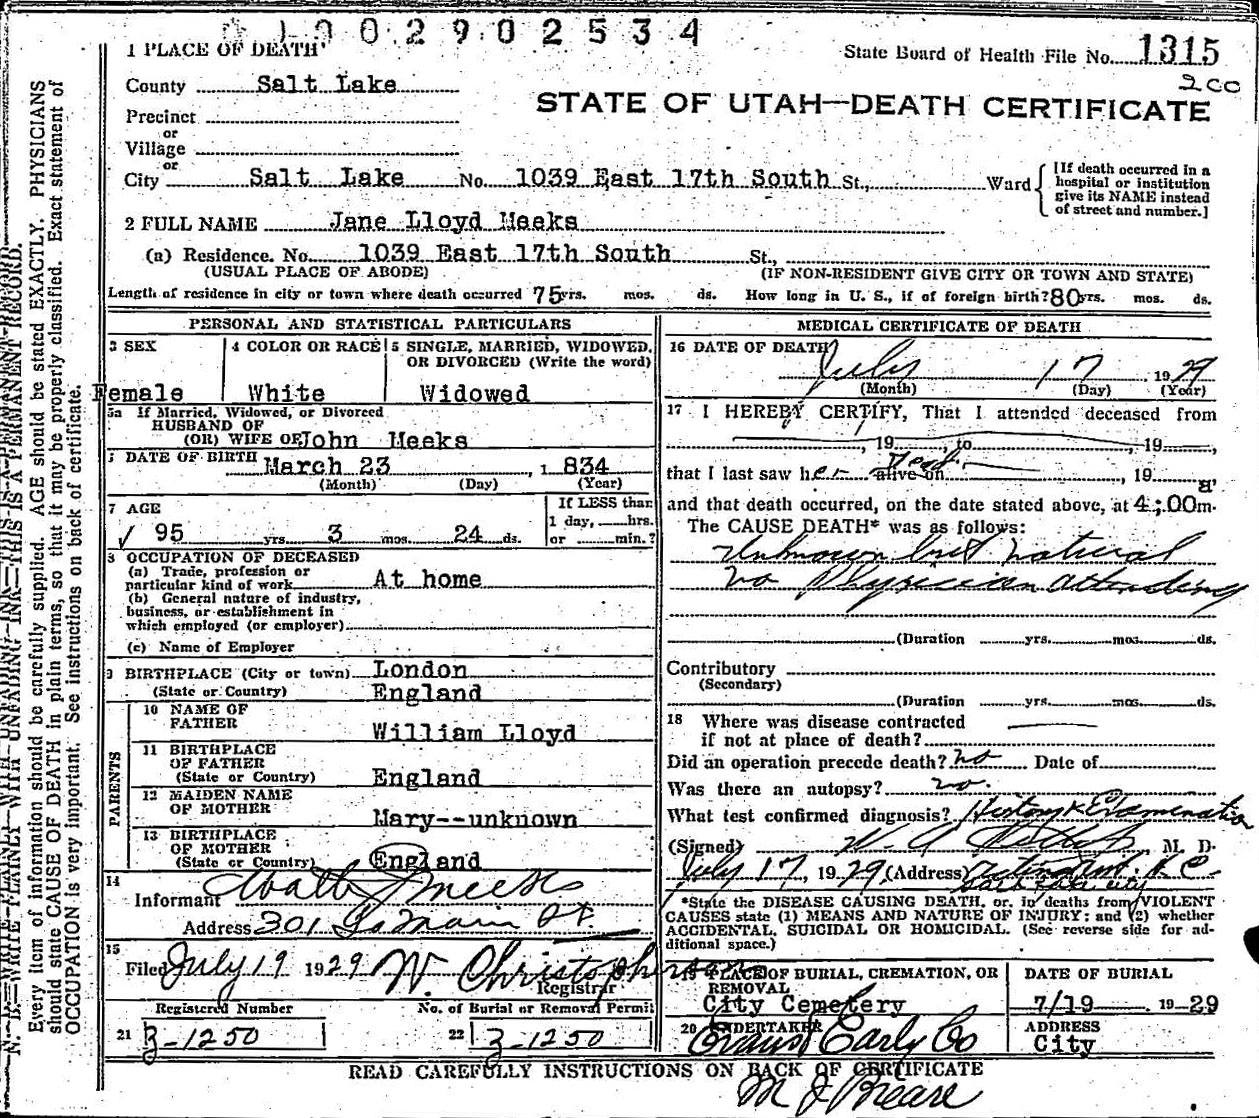 1002902534
1 PLACE OF DEATH
State Board of Health File No. 1315
200
County Salt Lake
STATE OF UTAH—DEATH CERTIFICATE
Precinct
or
Village
or
City Salt Lake No. 1039 East 17th South St., Ward
[If death occurred in a
hospital or institution
give its NAME instead
of street and number.]
2 FULL NAME Jane Lloyd Meeks
(a) Residence. No. 1039 East 17th South St.,
(USUAL PLACE OF ABODE) (IF NON-RESIDENT GIVE CITY OR TOWN AND STATE)
Length of residence in city or town where death occurred 75 yrs. mos. ds. How long in U. S., if of foreign birth? 80 yrs. mos. ds.
PERSONAL AND STATISTICAL PARTICULARS
3 SEX
Female
4 COLOR OR RACE
White
5 SINGLE, MARRIED, WIDOWED,
OR DIVORCED (Write the word)
Widowed
5a If Married, Widowed, or Divorced
HUSBAND OF
(OR) WIFE OF John Meeks
DATE OF BIRTH March 23, 1834
(Month) (Day) (Year)
7 AGE
95 yrs. 3 mos. 24 ds.
If LESS than
1 day, hrs.
or min.?
8 OCCUPATION OF DECEASED
(a) Trade, profession or
particular kind of work At home
(b) General nature of industry,
business, or establishment in
which employed (or employer)
(c) Name of Employer
9 BIRTHPLACE (City or town) London
(State or Country) England
PARENTS
10 NAME OF
FATHER William Lloyd
11 BIRTHPLACE
OF FATHER
(State or Country) England
12 MAIDEN NAME
OF MOTHER Mary--unknown
13 BIRTHPLACE
OF MOTHER
(State or Country) England
14
Informant Walter J Meeks
Address 301 So Main St.
15
Filed July 19 1929 W. Christopherson
Registrar
Registered Number No. of Burial or Removal Permit
21 3-1250 22 3-1250
MEDICAL CERTIFICATE OF DEATH
16 DATE OF DEATH
July 17 1929
(Month) (Day) (Year)
17 I HEREBY CERTIFY, That I attended deceased from
, 19 , to , 19 ,
that I last saw her alive on Dead , 19
and that death occurred, on the date stated above, at 4:00 a m.
The CAUSE DEATH* was as follows:
Unknown but natural
no Physician attending
(Duration yrs. mos. ds.
Contributory
(Secondary)
(Duration yrs. mos. ds.
18 Where was disease contracted
if not at place of death?
Did an operation precede death? no Date of
Was there an autopsy? no.
What test confirmed diagnosis? History & Examination
(Signed) , M. D.
July 17, 1929 (Address)
Salt Lake City
*State the DISEASE CAUSING DEATH, or, in deaths from VIOLENT
CAUSES state (1) MEANS AND NATURE OF INJURY; and (2) whether
ACCIDENTAL, SUICIDAL OR HOMICIDAL. (See reverse side for ad-
ditional space.)
19 PLACE OF BURIAL, CREMATION, OR
REMOVAL
City Cemetery
DATE OF BURIAL
7/19 1929
20 UNDERTAKER
Evans & Early Co
ADDRESS
City
READ CAREFULLY INSTRUCTIONS ON BACK OF CERTIFICATE
M J
N. B.—WRITE PLAINLY WITH UNFADING INK—THIS IS A PERMANENT RECORD.
Every item of information should be carefully supplied. AGE should be stated EXACTLY. PHYSICIANS
should state CAUSE OF DEATH in plain terms, so that it may be properly classified. Exact statement of
OCCUPATION is very important. See instructions on back of certificate.